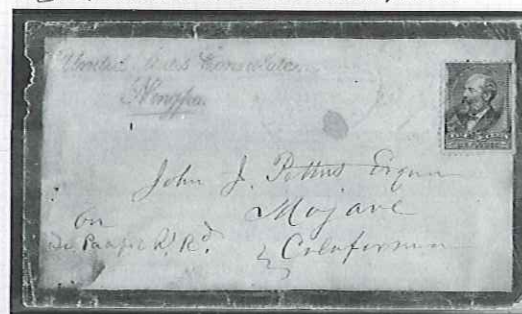 United States Consulate
Ningpo
John J. Pettus Esquire
Mojave
California
on
Pacific R. Rd.